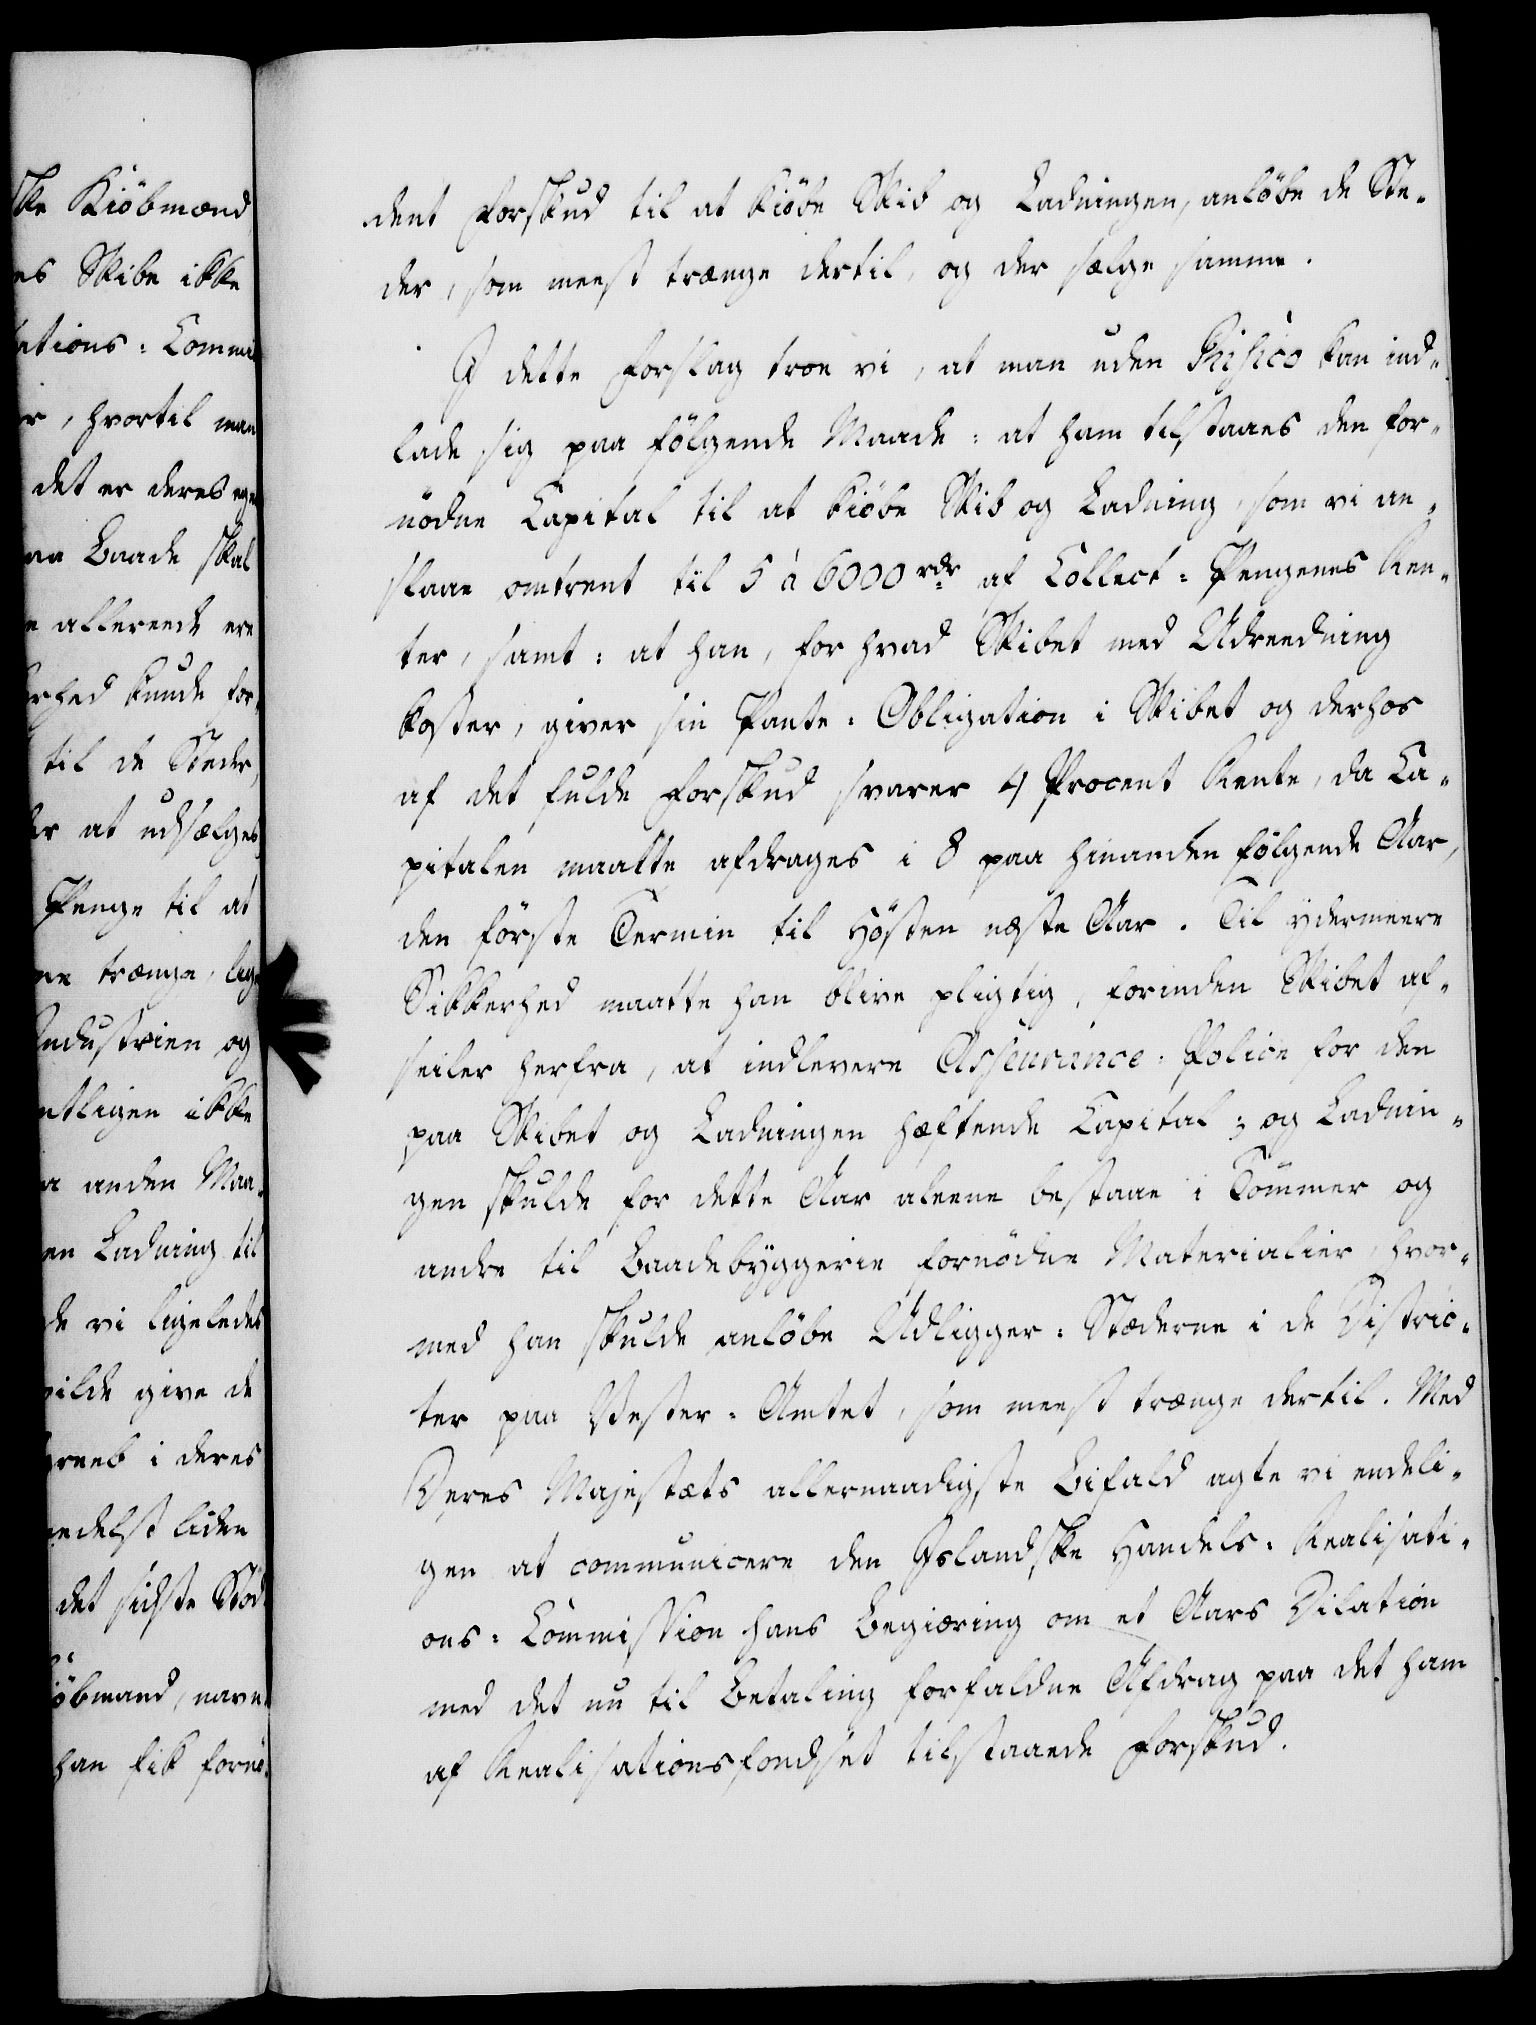 ske Kiöbmænd
es Skibe ikke
ations: Commi
r, hvortil man
det er deres egen
aa Baade skal
e allereede ere
rhed kunde for,
til de Steder,
er at udsælges,
Penge til at
ne trænge, lige
Industrien og
ntligen ikke
a anden Maa-
en Ladning til
de vi ligeledes
vilde give de
greeb i deres
medelst liden
det sidste Stöd
iöbmand, navn-
han fik fornö-
dent Forskud til at kiöbe Skib og Ladningen, anlöbe de Ste-
der, som meest trænge dertil, og der sælge samme.
I dette Forslag troe vi, at man uden Risico kan ind-
lade sig paa fölgende Maade: at ham tilstaaes den for-
nödne Capital til at kiöbe Skib og Ladning, som vi an-
slaae omtrent til 5 à 6000 rdr af Collect-Pengenes Ren-
ter, samt: at han, for hvad Skibet med Udreedning
koster, giver sin Pante-Obligation i Skibet og derhos
af det fulde Forskud svarer 4 Procent Rente, da Ca-
pitalen maatte afdrages i 8 paa hinanden fölgende Aar,
den förste Termin til Hösten næste Aar. Til ydermeere
Sikkerhed maatte han blive pligtig, forinden Skibet af-
seiler herfra, at indlevere Assurance-Police for den
paa Skibet og Ladningen hæftende Capital; og Ladnin-
gen skulde for dette Aar aleene bestaae i Tömmer og
andre til Baadebyggerie fornödne Materialier, hvor-
med han skulde anlöbe Udligger-Stæderne i de Distric-
ter paa Vester-Amtet, som meest trænge dertil. Med
Deres Majestæts allernaadigste Bifald agte vi endeli-
gen at communicere den Islandske Handels-Realisati-
ons-Commission hans Begiæring om et Aars Dilation
med det nu til Betaling forfaldne Afdrag paa det ham
af Realisationsfondset tilstaaede Forskud.